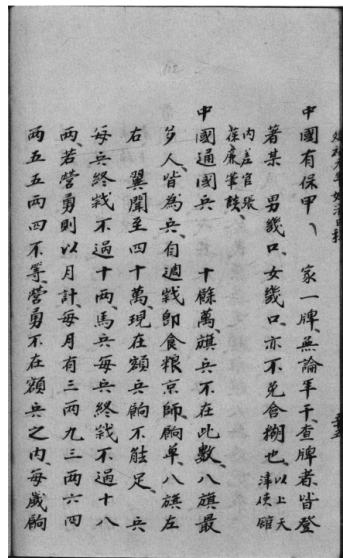 中國有保甲、　家一牌、無論軍于、查牌者皆登
著某　男幾口、女幾口、亦不免含糊也、以上天
津使館
内差官張
葆廉筆談、
中國通國兵　十餘萬、旗兵不在此數、八旗最
多人、皆為兵、自週歲即食粮京師、餉單、八旗左
右　翼聞至四十萬、現在額兵餉不能足、　兵
每兵終歲不過十兩、馬兵每兵終歲不過十八
兩、若營勇則以月計、每月有三兩九三兩六四
兩五五兩四不等、營勇不在額兵之内、每歲餉